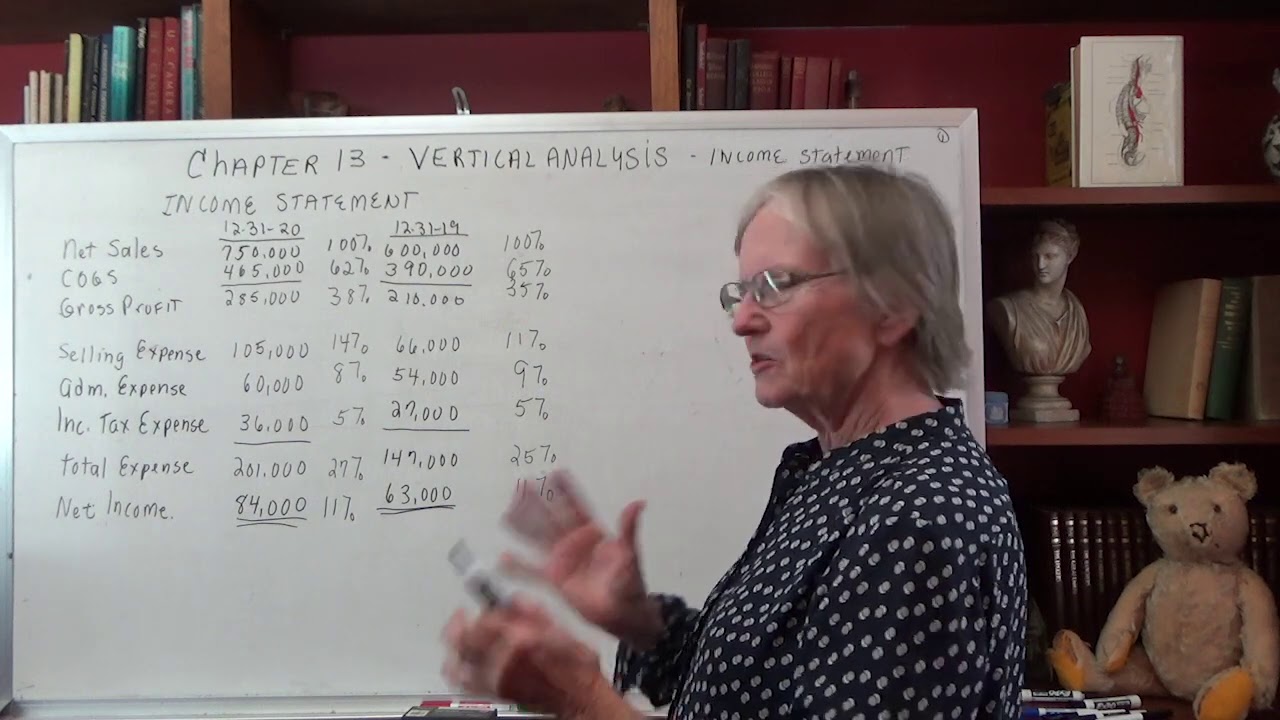 CHAPTER 13 - VERTICAL ANALYSIS - INCOME STATEMENT
INCOME STATEMENT
12-31-20 12-31-19
Net Sales 750,000 100% 600,000 100%
COGS 465,000 62% 390,000 65%
Gross Profit 285,000 38% 210,000 35%
Selling Expense 105,000 14% 66,000 11%
adm. Expense 60,000 8% 54,000 9%
Inc. Tax Expense 36,000 5% 27,000 5%
total Expense 201,000 27% 147,000 25%
Net Income. 84,000 11% 63,000